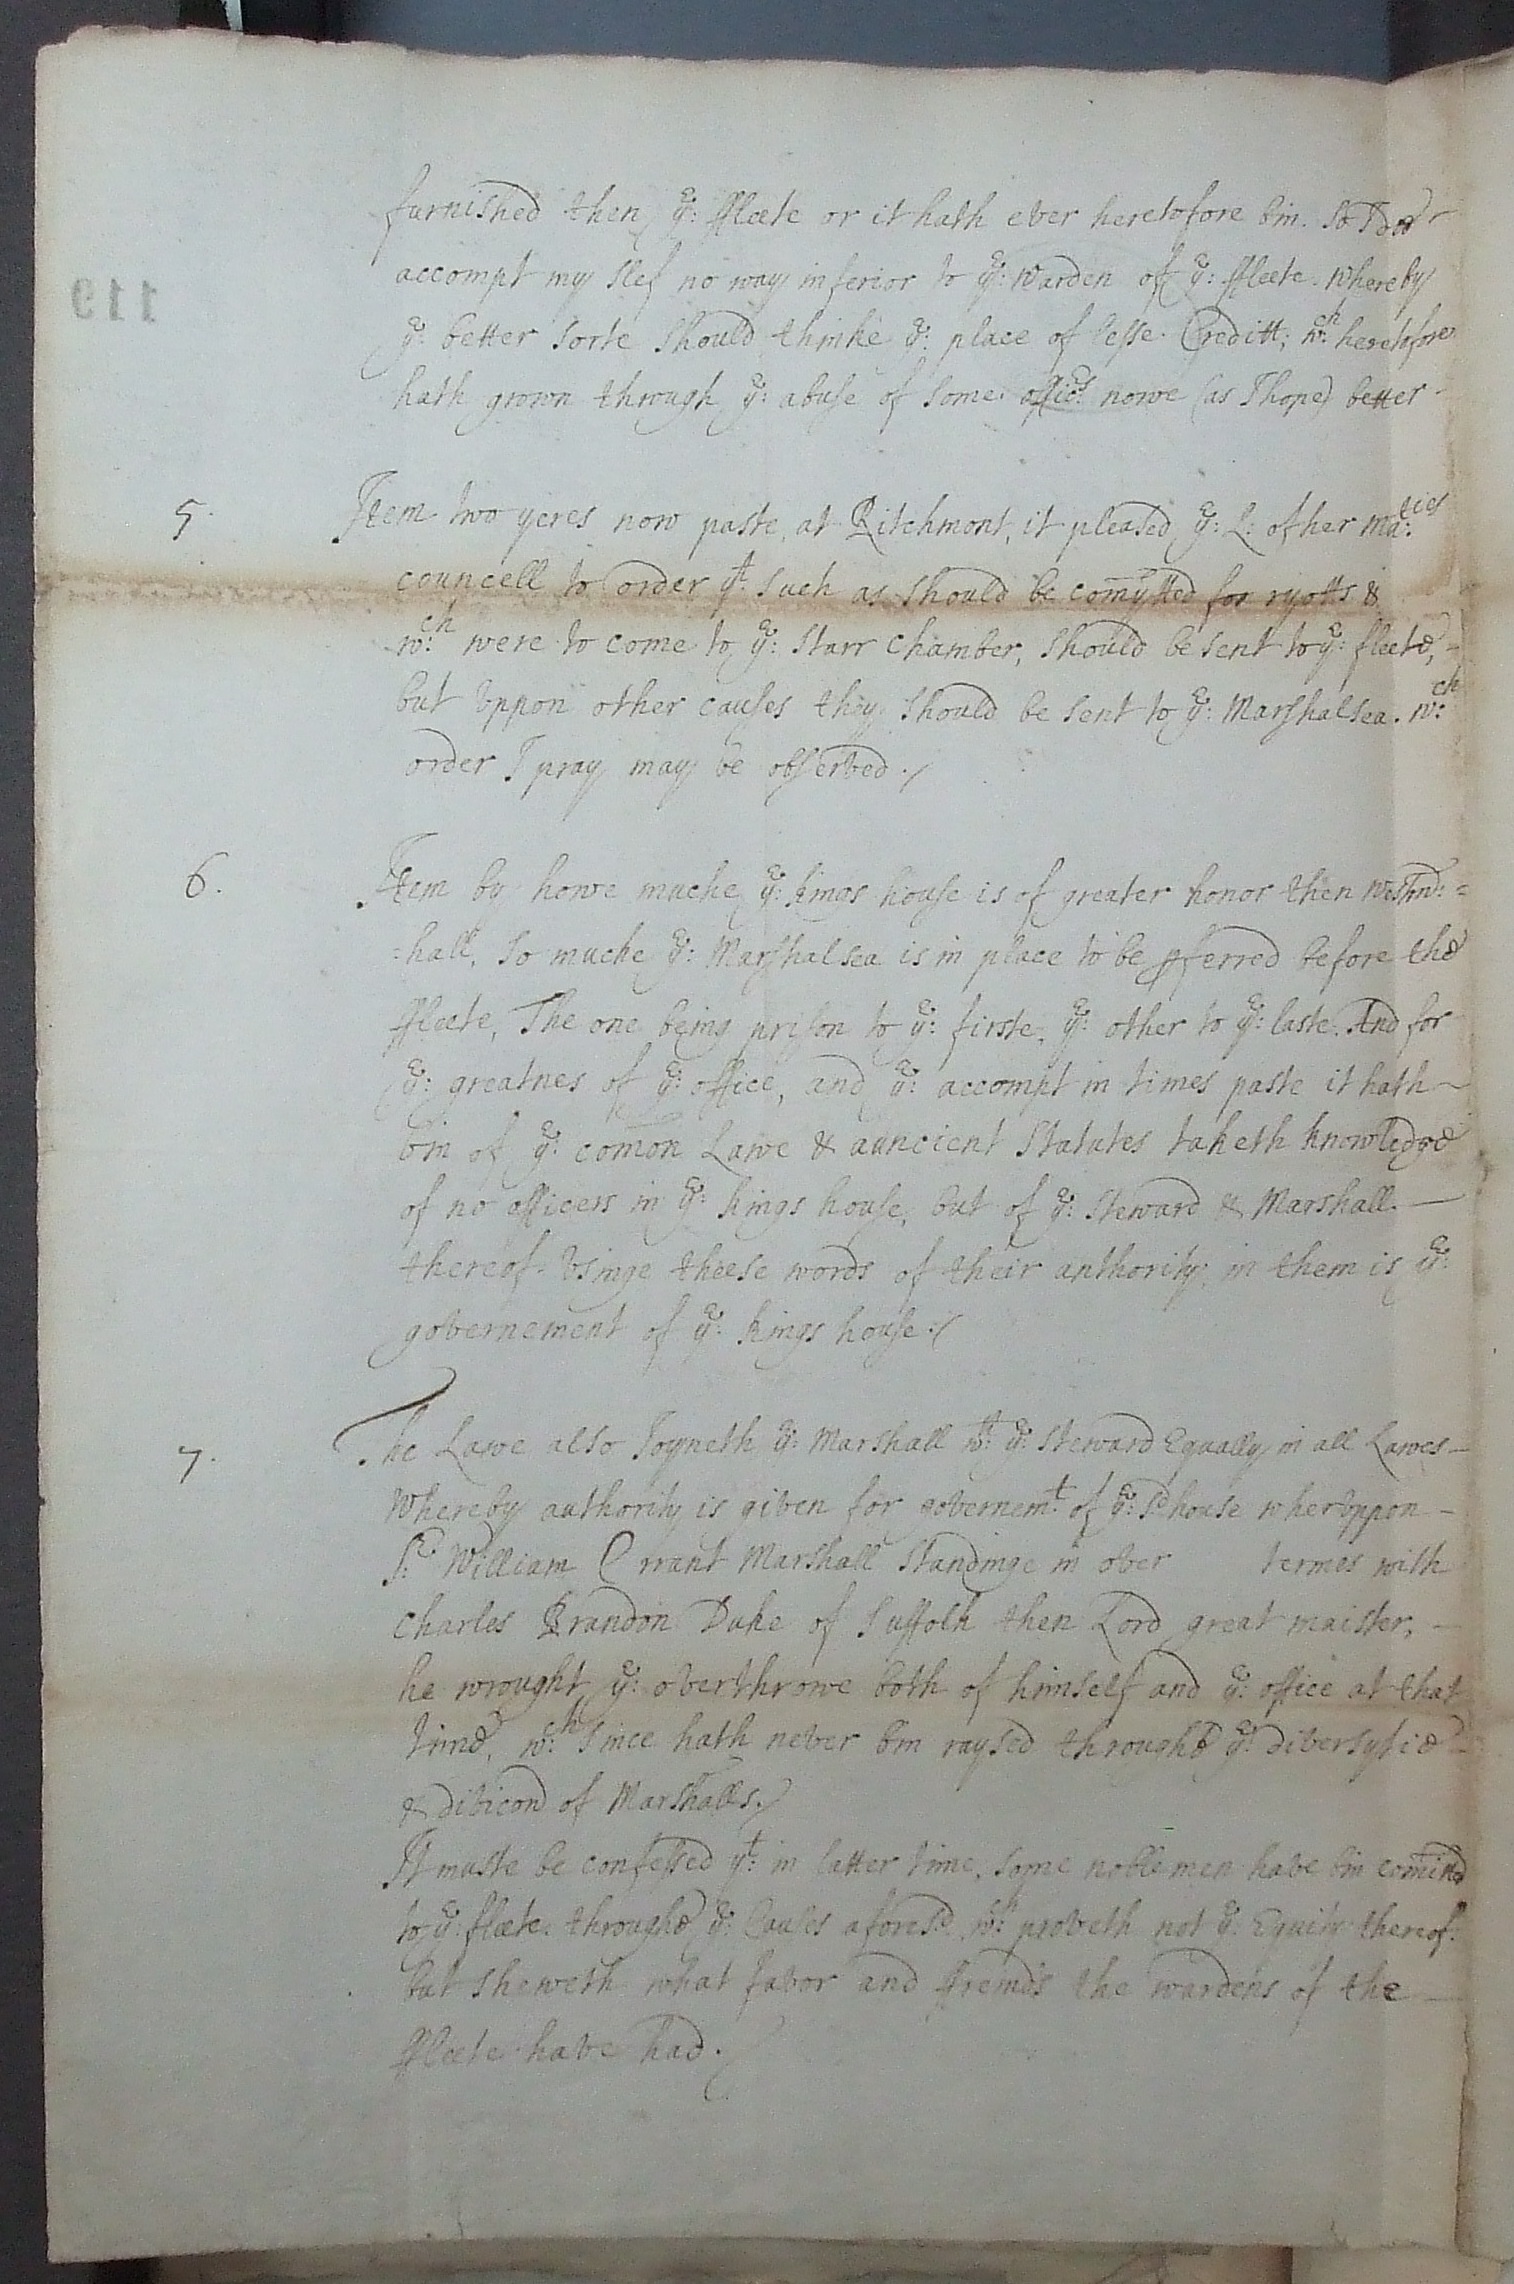 furnished then ye: ffleete or it hath ever heretofore bin. So I doe
accompt my slef no way inferior to ye: Warden of ye: ffleete. Whereby
ye: better sorte should thinke ye: place of lesse Creditt; wch: heretofore
hath grown through ye: abuse of some officrs: nowe (as I hope) better
5. Item two yeres now paste, at Ritchmont, it pleased ye: L: of her Maties:
councell to order yt: such as should be comytted for ryotts &
wch: were to come to ye: Starr Chamber, should be sent to ye: fleete,
but vppon other causes they should be sent to ye: Marshalsea. wch:
order I pray may be observed ./
6. Item by howe muche ye: kings house is of greater honor then Westmr: =
=hall, so muche ye: Marshalsea is in place to be pferred before the
ffleete, The one being prison to ye: firste, ye: other to ye: laste. And for
ye: greatnes of ye: office, and ye: accompt in times paste it hath
bin of ye: comon Lawe & auncient Statutes taketh knowledge
of no officers in ye: kings house, but of ye: Steward & Marshall.
thereof. Vsinge theese words of their authority, in them is ye:
governement of ye: kings house ./
7. The Lawe also Joyneth ye: Marshall wt: ye: Steward Equally in all Lawes
Whereby authority is given for governemt: of ye: sd house whervppon
Sr: William rrant Marshall Standinge in over termes with
Charles Brandon Duke of Suffolk then Lord great maister,
he wrought ye: overthrowe both of himself and ye: office at that
time, wch: since hath never bin raysed throughe ye: diversytie
& of Marshalls./
It muste be confessed yt: in latter time, some noble men have bin comitted
to ye: fleete. throughe ye: Causes aforesd: wch: proveth not ye: Equity thereof.
but sheweth what favor and ffreinds the wardens of the
ffleete have had.
119